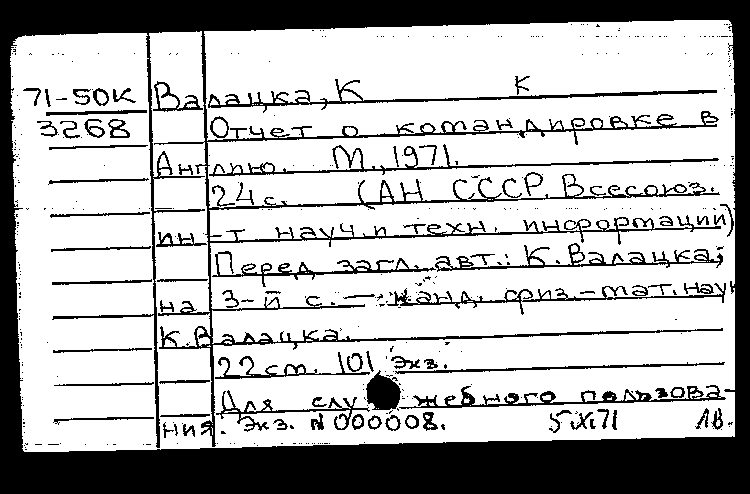 71-50К Валацка, К К
3268 Отчет о командировке в
Англию. М., 1971.
24 с. (АН СССР. Всесоюз.
ин-т науч. и техн. информации)
Перед загл. авт.: К. Валацка;
на 3-й с. — канд. физ.-мат. наук
К. Валацка.
22 см. 101 экз.
Для служебного пользова-
ния. Экз. N 000008. 5 XI 71 ЛВ.